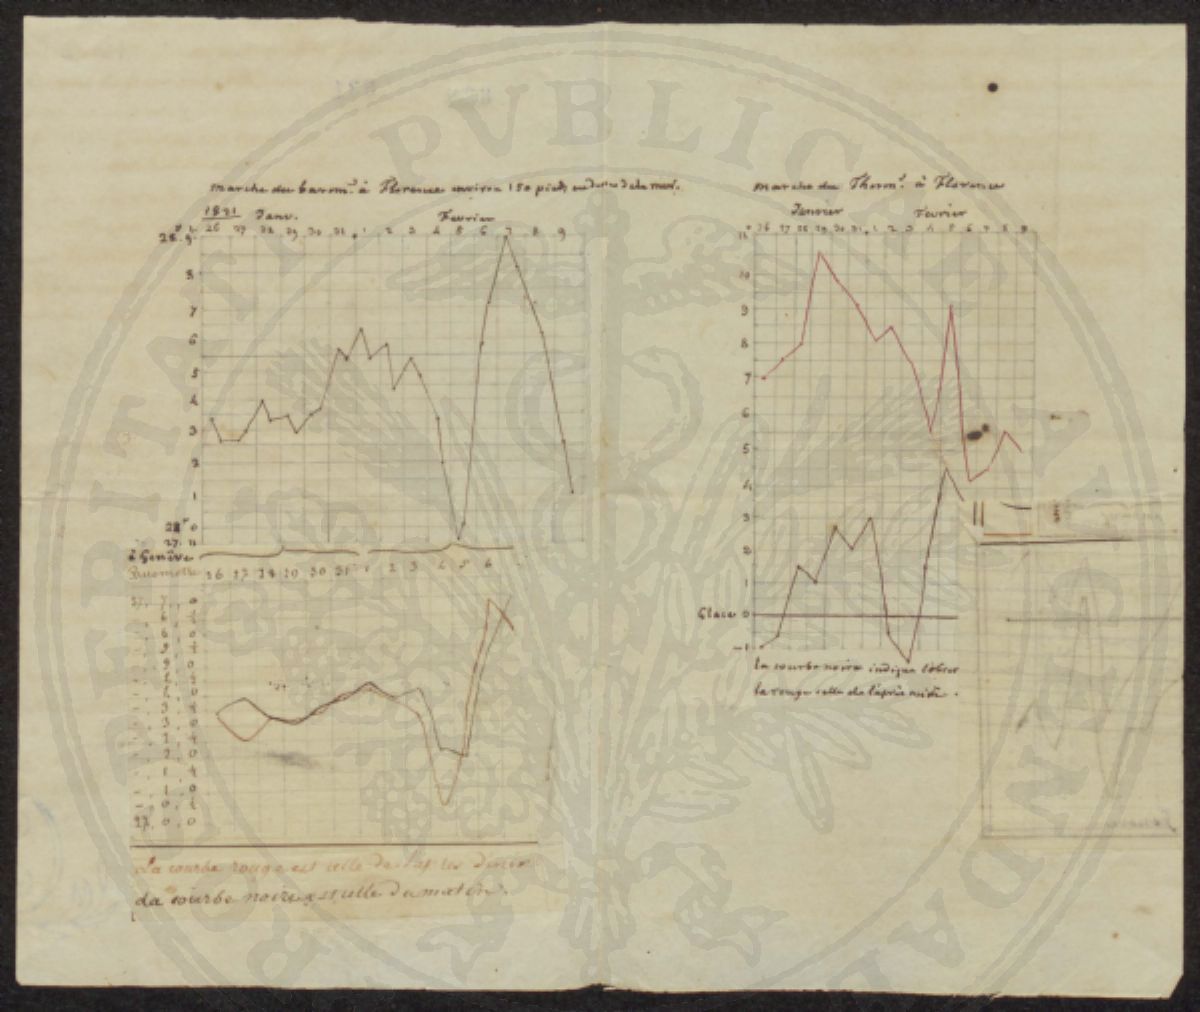 marche du barom.^e à Florence environ 150 pieds au dessus de la mer.
1821 Janv. Fevrier
26 27 28 29 30 31 1 2 3 4 5 6 7 8 9
28. 9
8
7
6
5
4
3
2
1
28 0
27. 11
à Genêve
Barometre 26 27 28 29 30 31 1 2 3 4 5 6
27. 0. 0
La courbe rouge est celle de l'après diner
La courbe noire est celle du matin.
marche du Therm.^e à Florence
Janvier Fevrier
26 27 28 29 30 31 1 2 3 4 5 6 7 8 9
11
10
9
8
7
6
5
4
3
2
1
Glace 0
-1
la courbe noire indique
la rouge celle de l'après midi.